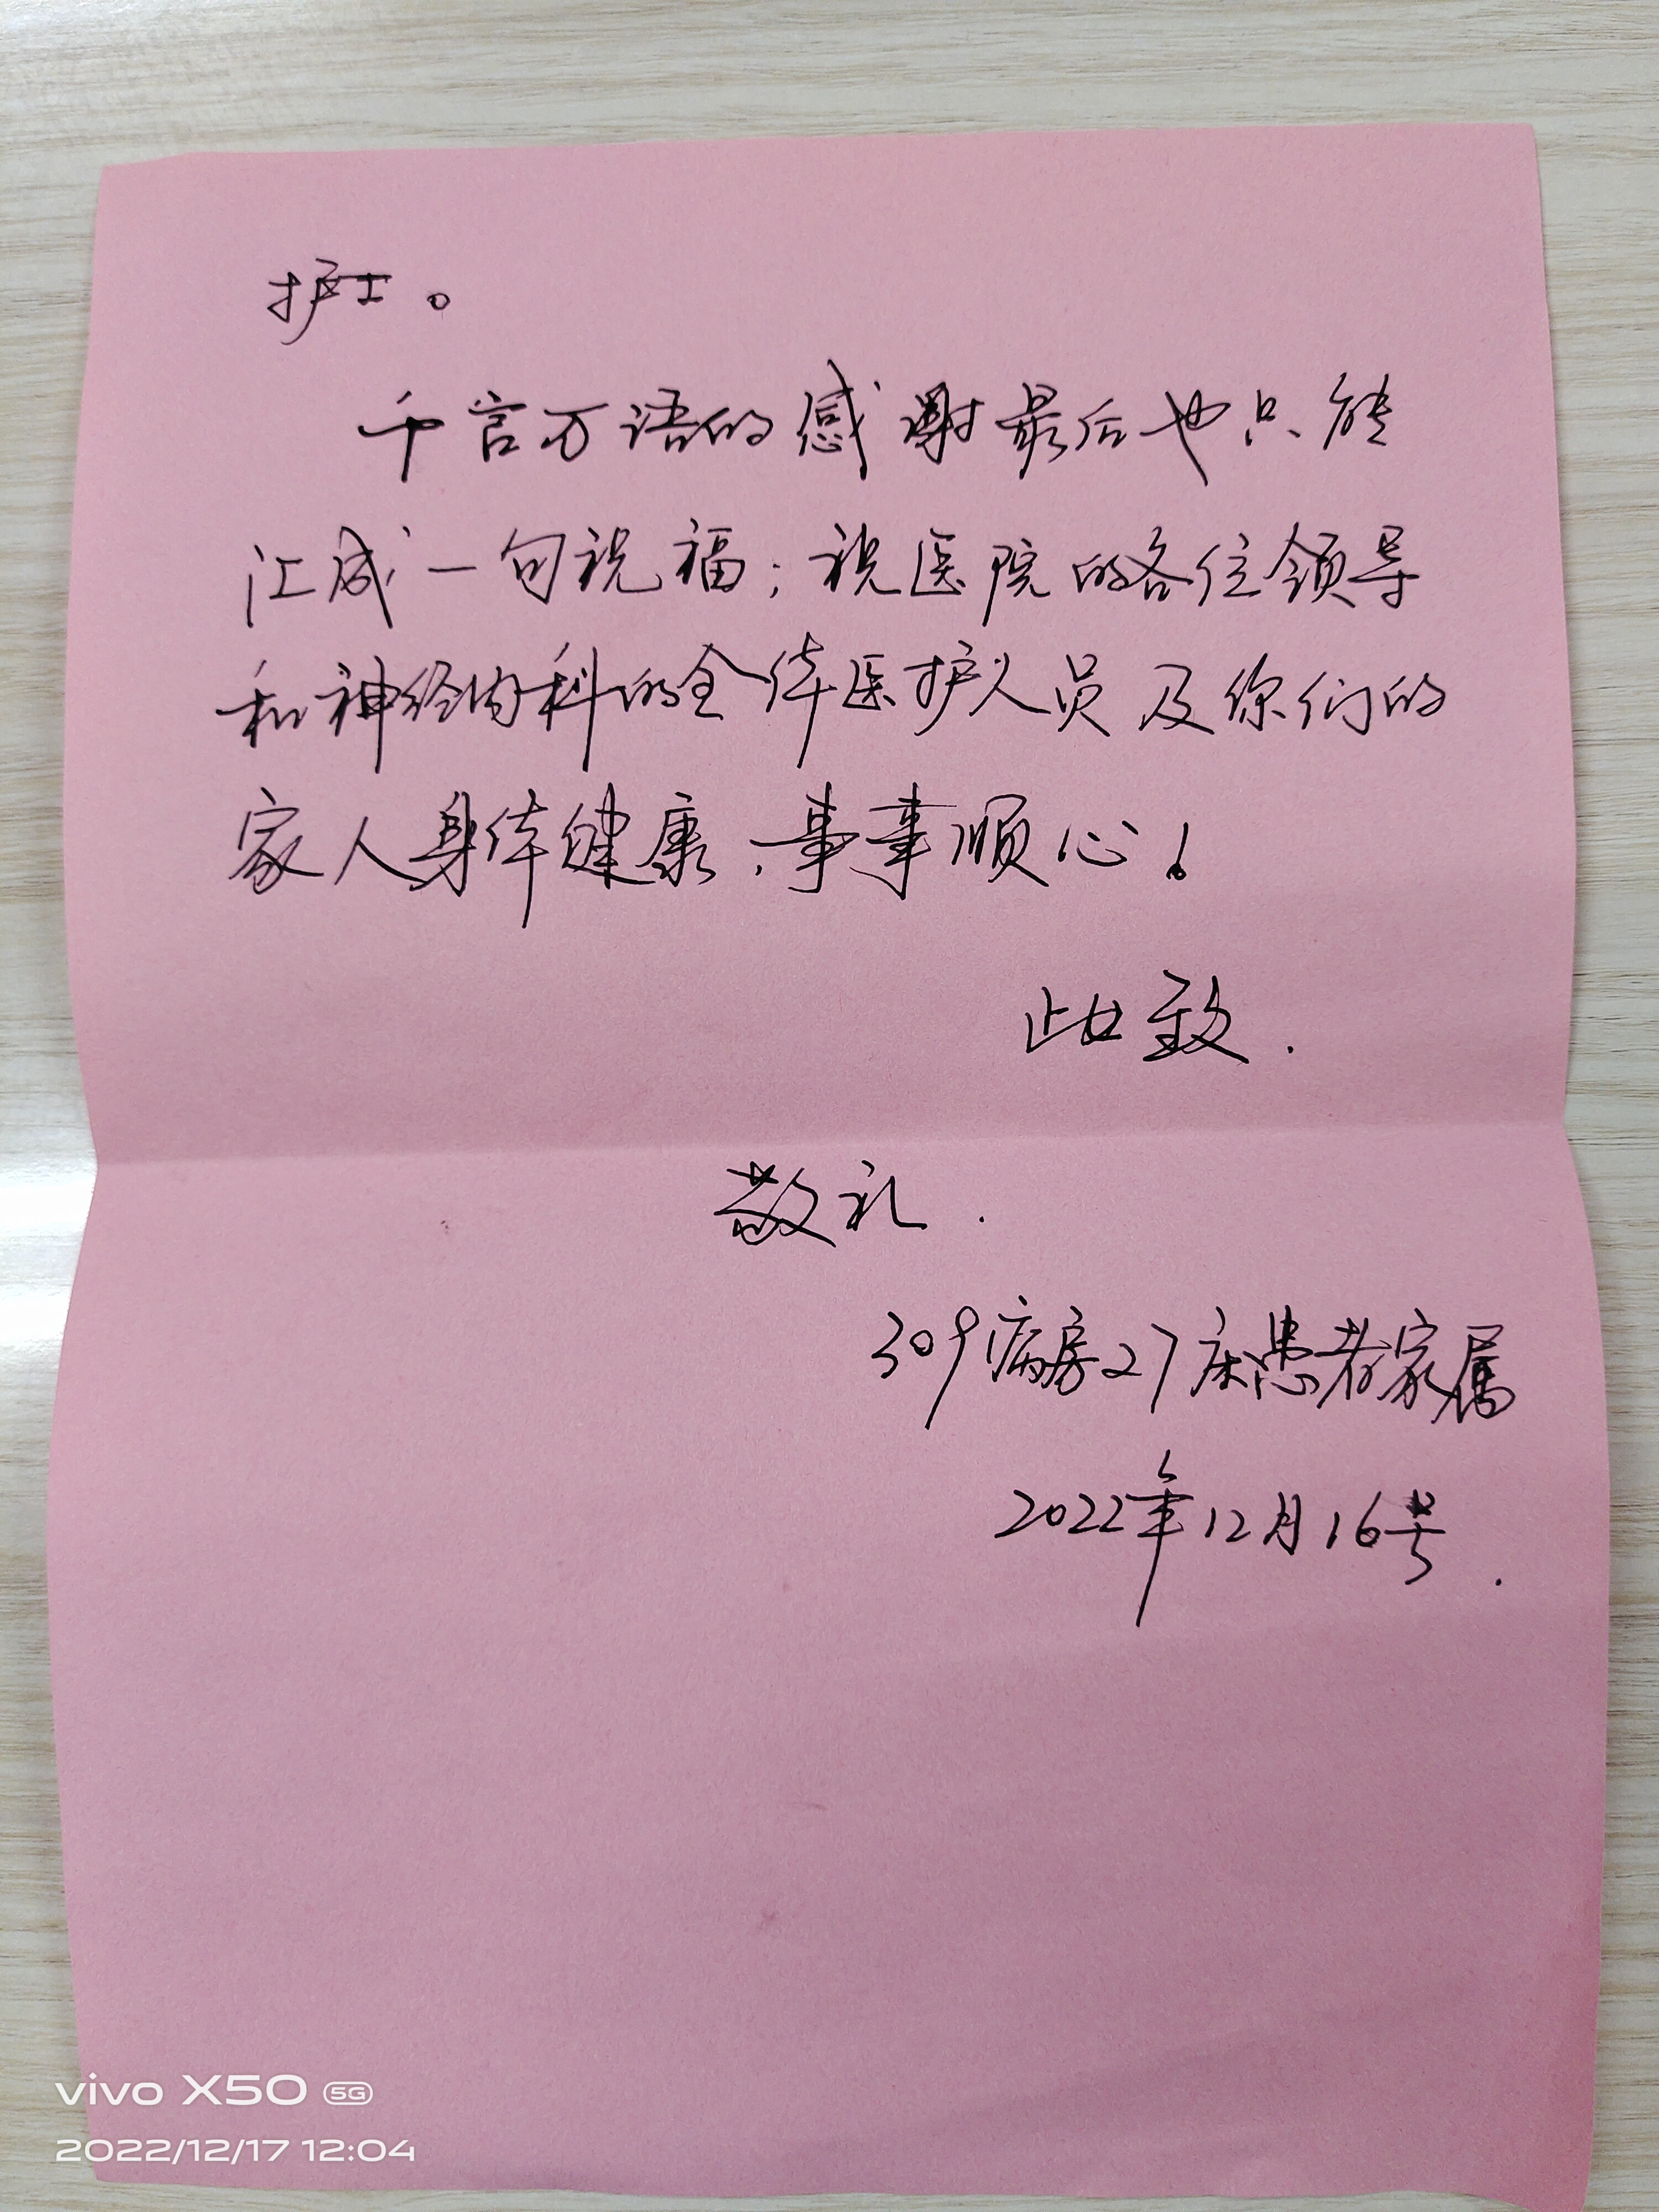 护士。
千言万语的感谢最后也只能
汇成一句祝福；祝医院的各位领导
和神经内科的全体医护人员及你们的
家人身体健康、事事顺心！
此致．
敬礼．
309病房27床患者家属
2022年12月16号．
vivo X50 5G
2022/12/17 12:04